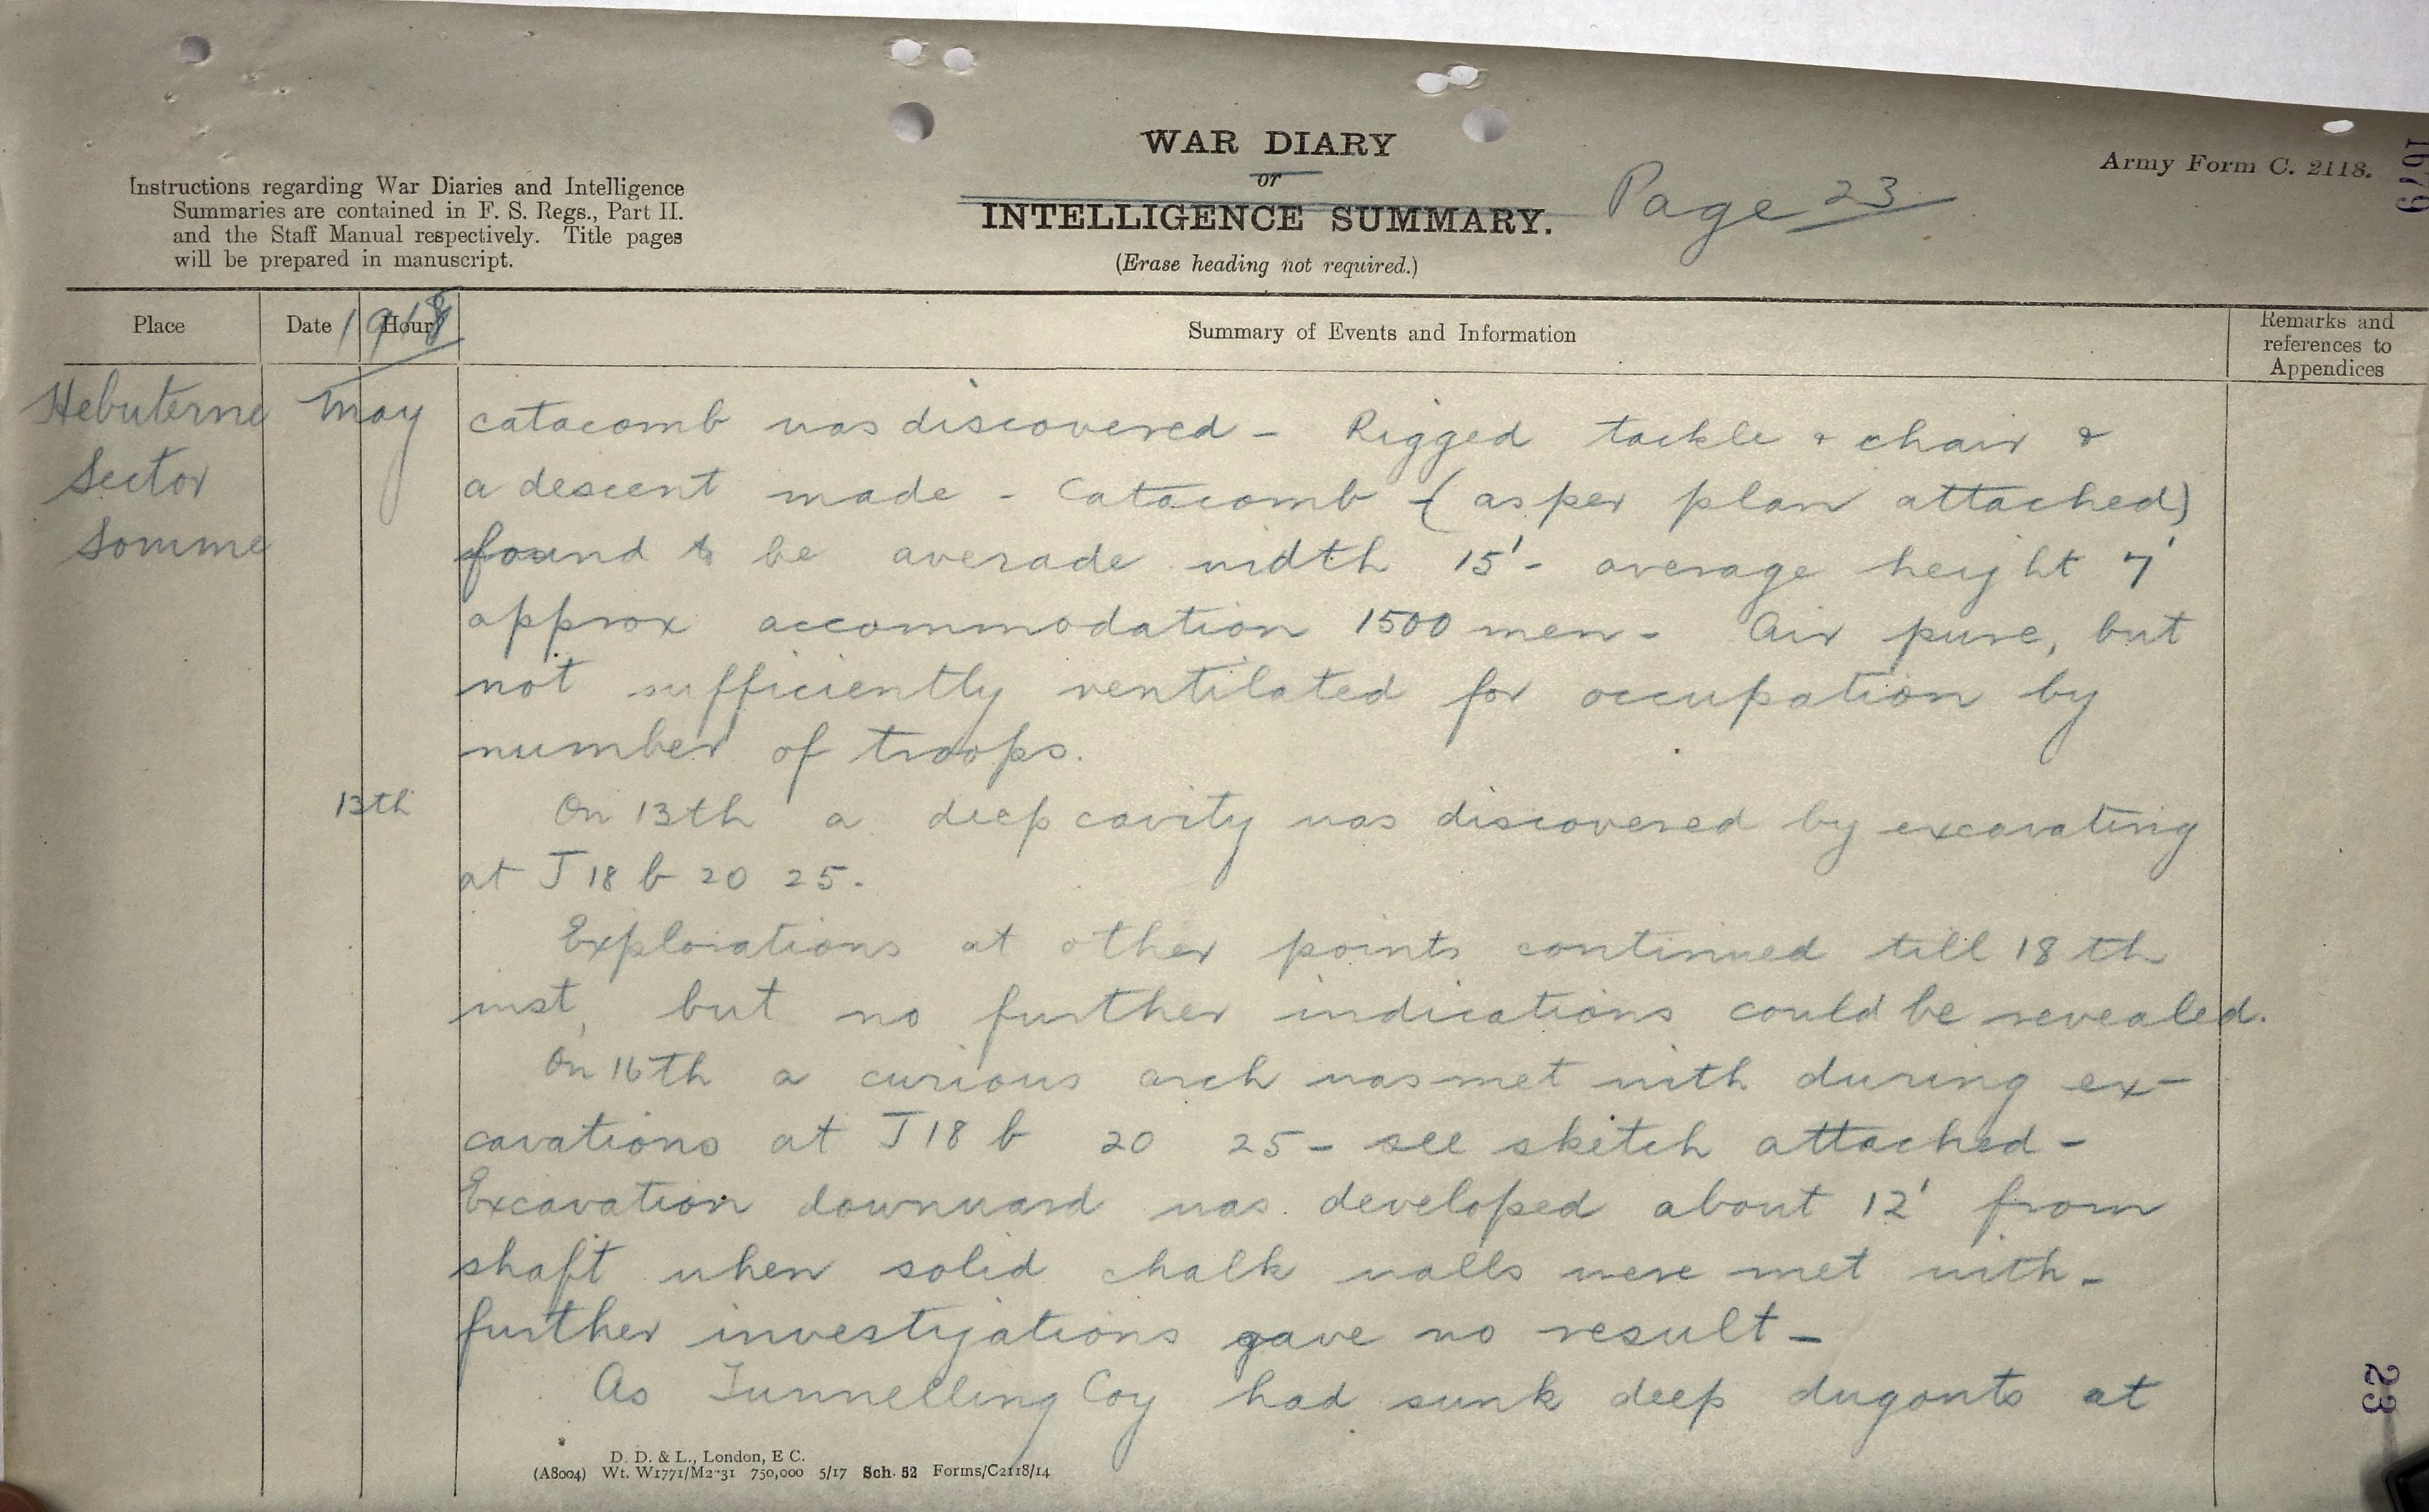 WAR DIARY
or
INTELLIGENCE SUMMARY.
(Erase heading not required.)
Page 23
Army Form C. 2118.
1679
Instructions regarding War Diaries and Intelligence
Summaries are contained in F. S. Regs., Part II.
and the Staff Manual respectively. Title pages
will be prepared in manuscript.
Place
Date
Hour
1918
Summary of Events and Information
Remarks and
references to
Appendices
Hebuterne
Sector
Somme
May
catacomb was discovered - Rigged tackle & chair &
a descent made - Catacomb - (as per plan attached)
found to be averade width 15' - average height 7'
approx accommodation 1500 men - Air pure, but
not sufficiently ventilated for occupation by
number of troops.
13th
On 13th a deep cavity was discovered by excavating
at J 18 b 20 25.
Explorations at other points continued till 18th
inst, but no further indications could be revealed.
On 16th a curious arch was met with during ex-
cavations at J 18 b 20 25 - see sketch attached -
Excavation downward was developed about 12' from
shaft when solid chalk walls were met with -
further investigations gave no result -
As Tunnelling Coy had sunk deep dugouts at
23
D. D. & L., London, E C.
(A8004) Wt. W1771/M2731 750,000 5/17 Sch. 52 Forms/C2118/14